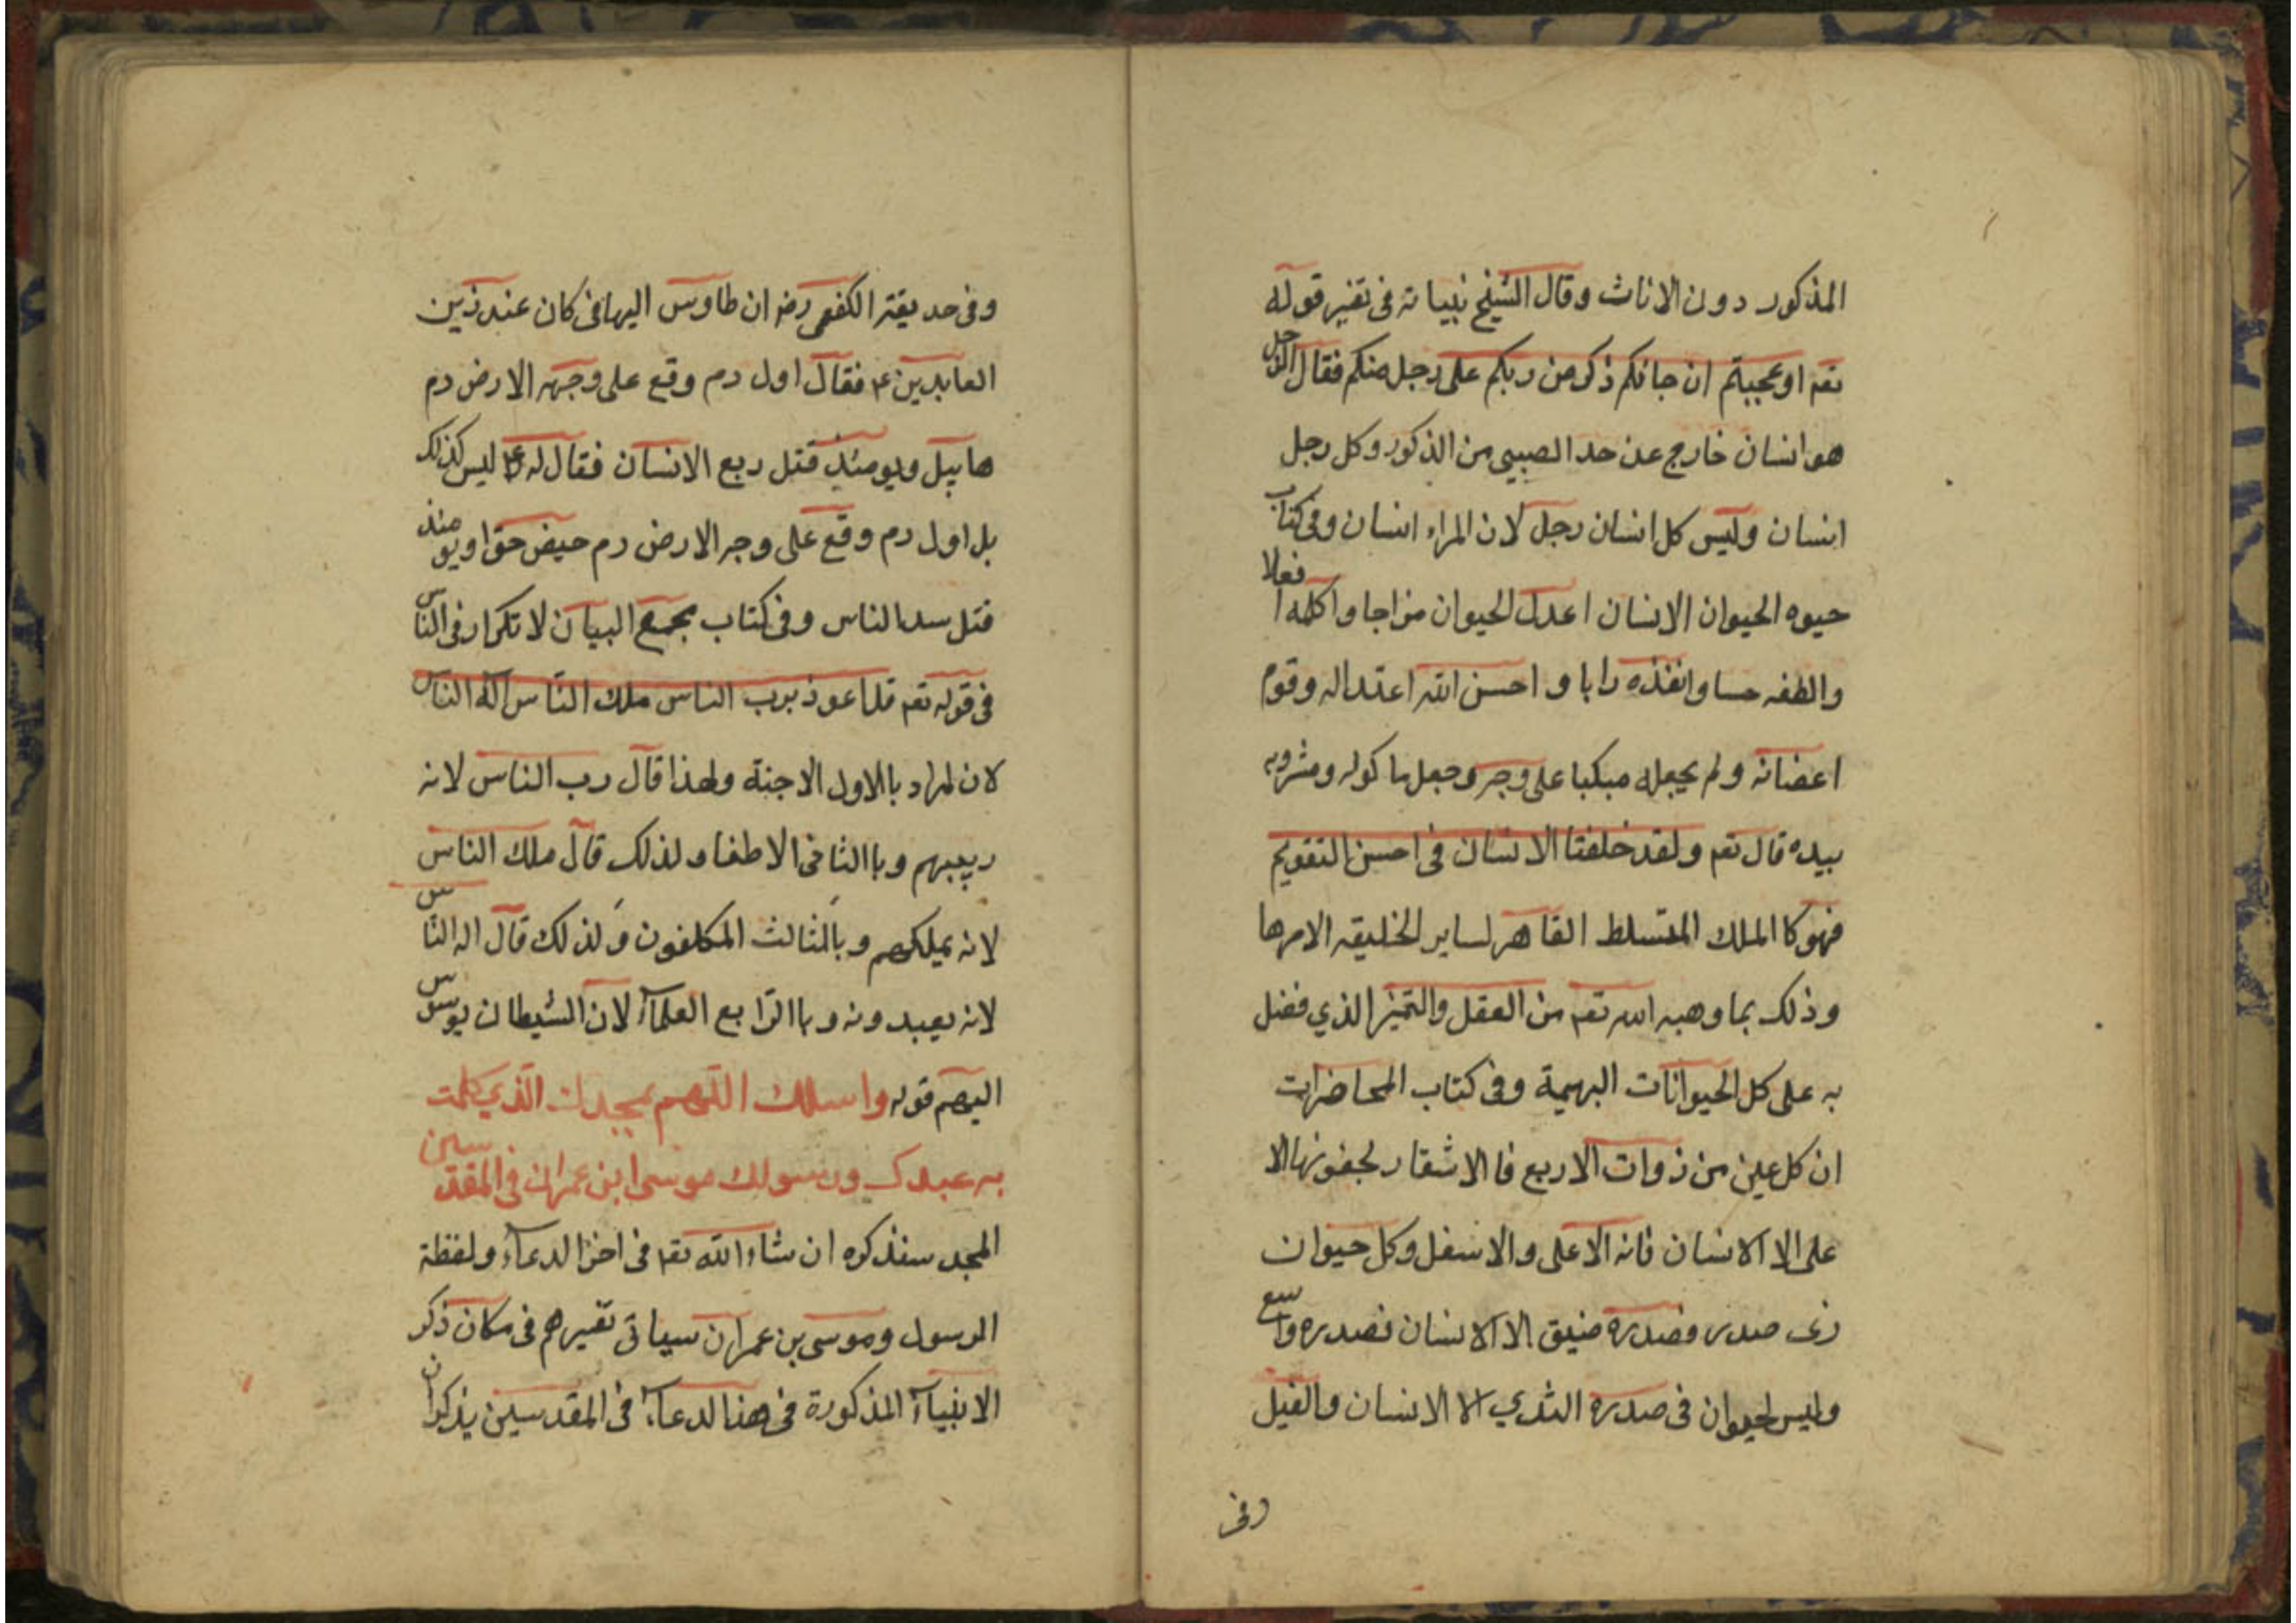 المذكور دون الاناث وقال الشيخ نبيانه فى تفير قوله
تعم اوعجبتم ان جائكم ذكر من ربكم على رجل منكم فقال الرجل
هو انسان خارج عن حد الصبيى من الذكور وكل رجل
انسان وليس كل انسان رجل لان المراء انسان وفى كتاب
حيوه الحيوان الانسان اعدل الحيوان مزاجا واكلمه افعلا
والطفه حسا وانفذه رايا و احسن الله اعتداله وقوم
اعضائه ولم يجعله مبكبا على وجه وجعل ماكوله ومشروبه
بيده قال تعم ولقد خلقنا الانسان فى احسن التقويم
فهو كا الملك المتسلط القاهر لساير الخليقه الامرها
وذلك بما وهبه الله تعم من العقل والتميز الذي فضل
به على كل الحيوانات البهيمة وفى كتاب المحاضرات
ان كل عين من ذوات الاربع فا الاشقار لجفونها الا
على الا الانسان فانه الاعلى والاسفل وكل حيوان
ذى صدر فصدره ضيق الا الانسان فصدره واسع
وليس لحيوان فى صدره الثدي الا الانسان والفيل
وفى
وفى حديقة الكفعمى رضه ان طاوس اليمانى كان عند زين
العابدين ع فقال اول دم وقع على وجه الارض دم
هابيل ويومئذ قتل ربع الانسان فقال له ع ليس كذلك
بل اول دم وقع على وجه الارض دم حيض حوا ويومئذ
قتل سدس الناس وفى كتاب مجمع البيان لا تكرار فى الناس
فى قوله تعم قل اعوذ برب الناس ملك الناس اله الناس
لان لمراد بالاول الاجنة ولهذا قال رب الناس لانه
يربيهم وبا الثانى الاطفا ولذلك قال ملك الناس
لانه يملكهم وبالثالث المكلفون ولذلك قال اله الناس
لانه يعبدونه وبا الرابع العلمآء لان الشيطان يوسوس
اليهم قوله واسئلك اللهم بمجدك الذي كلمت
به عبدك ورسولك موسى ابن عمران فى المقدسين
المجد سنذكره ان شاء الله تعم فى اخر الدعآء ولفظة
الرسول وموسى بن عمران سياتى تفيرهم فى مكان ذكر
الانبيآء المذكورة فى هذا لدعآء فى المقدسين يذكر ان